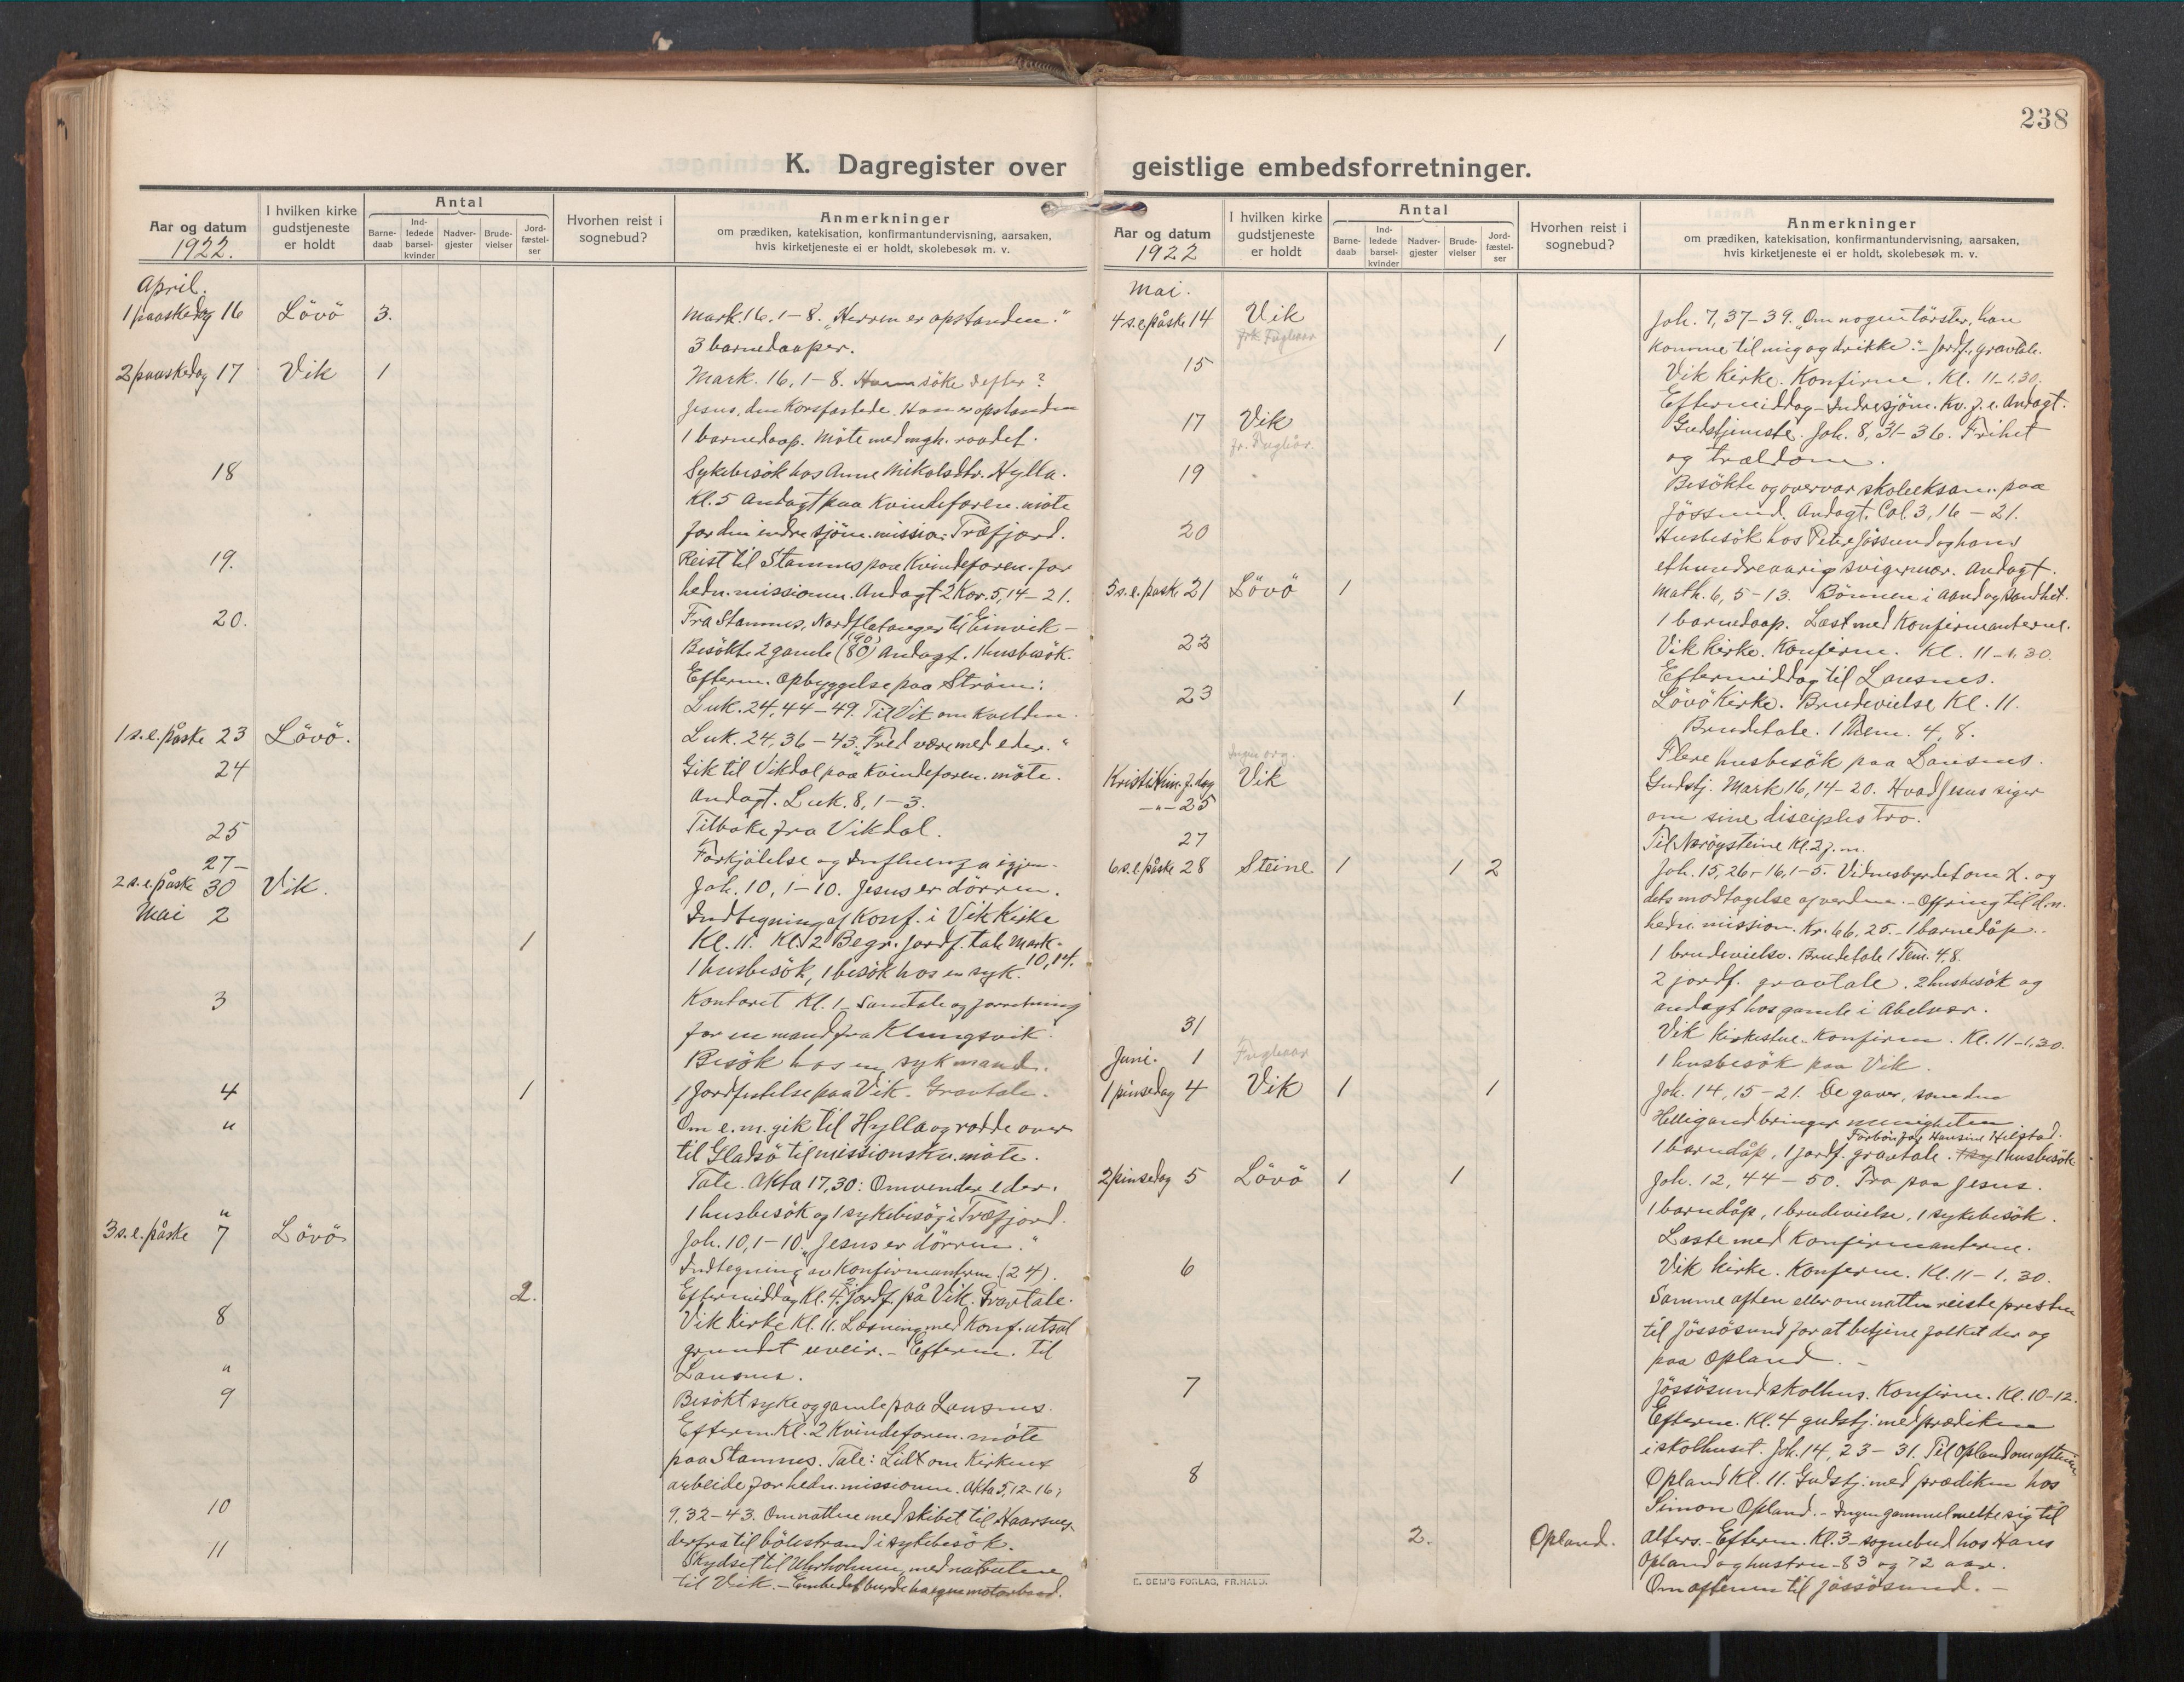 238
K. Dagregister over geistlige embedsforretninger.
Aar og datum
1922.
I hvilken kirke gudstjeneste er holdt
Antal
Barne-daab
Ind-ledede barsel-kvinder
Nadver-gjester
Brude-vielser
Jord-fæstel-ser
Hvorhen reist i sognebud?
Anmerkninger
om prædiken, katekisation, konfirmantundervisning, aarsaken,
hvis kirketjeneste ei er holdt, skolebesøk m. v.
April.
1 paaskedag 16 Lövö 3. Mark. 16, 1-8. "Herren er opstanden."
3 barnedaaper.
2 paaskedag 17 Vik 1 Mark. 16, 1-8. söke defter?
Jesus, den korsfæstede. Han er opstanden
1 barnedaap. Möte med mgh. raadet.
18 Sykebesök hos Anne Mikalsdtr. Hylla.
Kl. 5 Andagt paa Kvindeforen. möte
for den indre sjöm. mission: Træfjord.
19. Reist til Stamnes paa Kvindeforen. for
hedn. missionen. Andagt 2 Kor. 5, 14-21.
20. Fra Stamnes, Nordflatanger til Einvik -
Besökte 2 gamle (80) (90) Andagt. 1 husbesök.
Efterm. Opbyggelse paa Ström:
Luk. 24, 44-49. Til Vik om kvelden.
1 s. e. påske 23 Lövö. Luk. 24, 36-43. "Fred være med eder."
24 Gik til Vikdal paa Kvindeforen. möte.
Andagt. Luk. 8, 1-3.
25 Tilbake fra Vikdal.
27- Forkjölelse og Influenza igjen.
2 s. e. påske 30 Vik. Joh. 10, 1-10. Jesus er dörren.
Mai 2 Indtegning af Konf. i Vik Kirke
1 Kl. 11. Kl. 2 Begr. jordf. tale Mark. 10,14.
1 husbesök, 1 besök hos en syk.
3 Kontoret Kl. 1 - Samtale og forretning
for en mand fra Klungsvik.
Besök hos en syk mand.
4 1 1 Jordfestelse paa Vik. Gravtale.
" Om e. m. gik til Hylla og rodde over
til Gladsö til missionskv. möte.
Tale. Akta 17, 30: Omvender eder.
" 1 husbesök og 1 sykebesög i Træfjord.
3 s. e. påske 7 Lövö Joh. 10, 1-10. "Jesus er dörren."
Indtegning av Konfirmanterne (24).
2. Eftermiddag Kl. 4. 2 jordf. på Vik. Gravtale.
8 Vik Kirke Kl. 11. Læsning med Konf. utsat
grundet uveir. - Efterm. til
" Lausnes.
9 Besökt syke og gamle paa Lausnes.
Efterm. Kl. 2 Kvindeforen. möte
paa Stamnes. Tale: Litt om Kirkens
arbeide for hedn. missionen. Akta 5, 12-16;
10 9, 32-43. Om natten med skibet til Haarsnes
derfra til bölestrand i sykebesök.
11 Skydset til Uhrholmen, med natruten
til Vik. - Embedet burde ha egen motorbaad.
Aar og datum
1922
I hvilken kirke gudstjeneste er holdt
Antal
Barne-daab
Ind-ledede barsel-kvinder
Nadver-gjester
Brude-vielser
Jord-fæstel-ser
Hvorhen reist i sognebud?
Anmerkninger
om prædiken, katekisation, konfirmantundervisning, aarsaken,
hvis kirketjeneste ei er holdt, skolebesøk m. v.
Mai.
4 s. e. påske 14 Vik Joh. 7, 37-39. "Om nogen törster, han
frk Fuglaar 1 komme til mig og drikke." - Jordf., gravtale.
15 Vik Kirke. Konfirm. Kl. 11-1.30.
Eftermiddag - Indresjöm. Kv. f. e. Andagt.
17 Vik Gudstjeneste. Joh. 8, 31-36. Frihet
fr. Fuglår. og trældom.
19 Besökte og overvar skoleeksam. paa
Jössund. Andagt. Col. 3, 16-21.
20 Husbesök hos Peter Jössund og hans
ethundreaarig svigermor. Andagt.
5 s. e. påsk. 21 Lövö 1 Math. 6, 5-13. Bönnen i Aand og Sandhet.
1 barnedaap. Læst med Konfirmanterne.
22 Vik Kirke. Konfirm. Kl. 11-1.30.
Eftermiddag til Lausnes.
23 1 Lövö Kirke. Brudevielse Kl. 11.
Brudetale. 1 Tem. 4, 8.
Flere husbesök paa Lausnes.
Ingen org.
Kristi Him. f. dag Vik Gudstj. Mark 16, 14-20. Hvad Jesus siger
-"- 25 om sine disciples tro.
27 Til Nærögsteine Kl. 2 f. m.
6 s. e. påske 28 Steine 1 1 2 Joh. 15, 26, - 16, 1-5. Vidnesbyrdet om X. og
dets modtagelse af verden. - Offring til d. n.
hedn. mission. Kr. 66.25. - 1 barnedåp.
1 brudevielse. Brudetale 1 Tem. 4, 8.
2 jordf. gravtale. 2 husbesök og
andagt hos gamle i Abelvær.
31 Vik Kirkestue. Konfirm. Kl. 11-1.30.
Juni. 1 Fuglaar 1 husbesök paa Vik.
1 pinsedag 4 Vik 1 1 Joh. 14, 15-21. De gaver, som den
Helligaand bringer menigheten
Forbön for Hansine Hilstad.
1 barnedåp, 1 jordf. gravtale. 1 husbesök
2 pinsedag 5 Lövö 1 1 Joh. 12, 44-50. Tro paa Jesus.
1 barnedåp, 1 brudevielse, 1 sykebesök.
Læste med Konfirmanterne.
6 Vik Kirke. Konferm. Kl. 11-1.30.
Samme aften eller om natten reiste presten
til Jössösund for at betjene folket der og
paa Opland. -
7 Jössösund skolhus. Konfirm. Kl. 10-12.
Efterm. Kl. 4 gudstj. med prædiken
i skolhuset. Joh. 14, 23-31. Til Opland om aftenen
8 Opland Kl. 11. Gudstj. med prædiken hos
Simon Opland. - Ingen gammel meldte sig til
2. Opland. Alters. - Efterm. Kl. 3 - sognebud hos Hans
Opland og hustru - 83 og 72 aar.
Om aftenen til Jössösund. -
E. SEM'S FORLAG, FR.HALD.